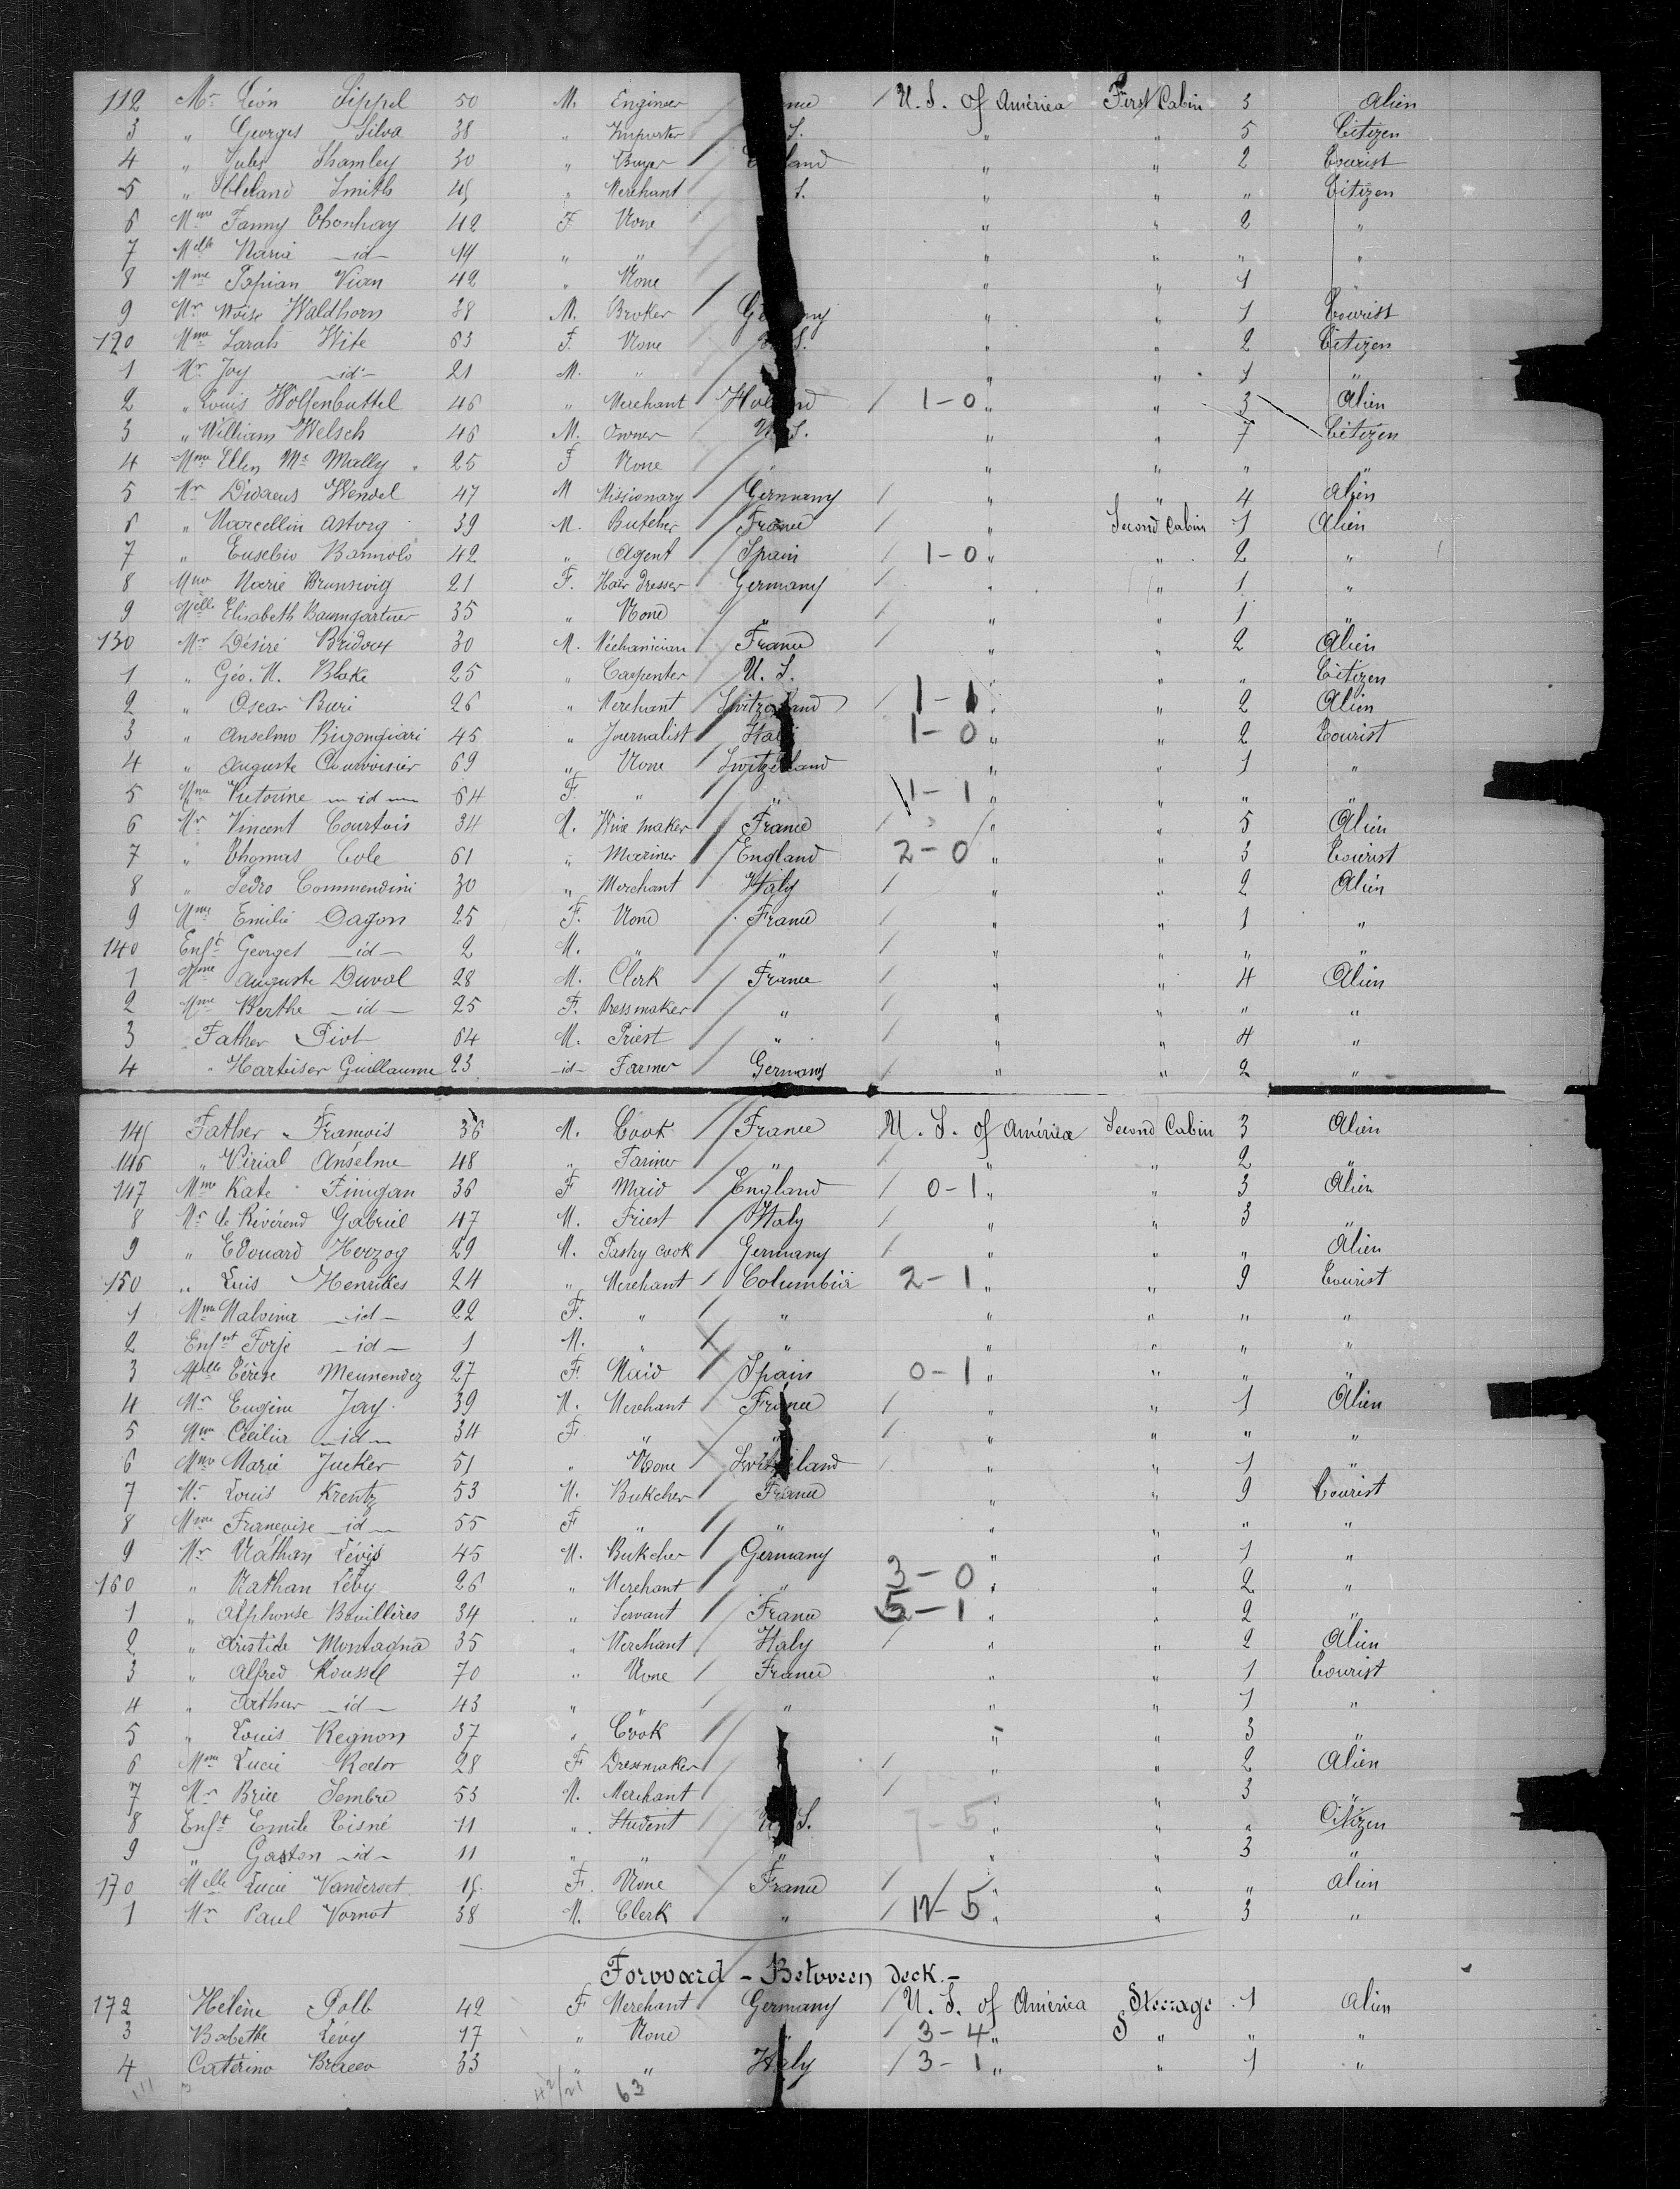 112 Mr Léon Sippel 50 M. Engineer / U. S. of América First Cabin 3 Alien
3 " Georges Silva 38 " Importer S. " " 5 Citizen
4 " Jules Shamley 30 " Buyer land " " 2 Tourist
5 " Cleland Smith 45 " Merchant S. " " " Citizen
6 Mme Fanny Thonhay 42 F None " " 2 "
7 Melle Maria -id- 19 " " " " " "
8 Mme Papian Vian 42 " None " " 1 "
9 Mr Moïse Waldhorn 38 M. Broker Germany " " 1 Tourist
120 Mme Sarah Wite 63 F. None U. S. " " 2 Citizen
1 Mr Joy -id- 21 M. " " " 1 "
2 " Louis Wolfenbuttel 46 " Merchant Holland / 1-0 " " 3 Alien
3 " William Welsch 46 M. Owner U. S. " " 7 Citizen
4 Mme Ellen Mc Mally 25 F None " " " " "
5 Mr Didaeus Wendel 47 M Missionary Germany / " " 4 Alien
6 " Marcellin Astorg 39 M. Butcher France / " Second Cabin 1 Alien
7 " Eusebio Bannolo 42 " Agent Spain / 1-0 " " 2 "
8 Mme Marie Brunswig 21 F. Hair Dresser Germany / " " 1 "
9 Melle Elisabeth Baumgartner 35 " None " / " " 1 "
130 Mr Désiré Bridoux 30 M. Méchanician France / " " 2 Alien
1 " Géo. M. Blake 25 " Carpenter U. S. " " " Citizen
2 " Oscar Buri 26 " Merchant Switzerland / 1-1 " " 2 Alien
3 " Anselmo Bizongiari 45 " Journalist Italy 1-0 " " 2 Tourist
4 " Auguste Courvoisier 69 " None Switzerland " " 1 "
5 Mme Victorine -id- 64 F. " " 1-1 " " " "
6 Mr Vincent Courtois 34 M. Wine maker France / " " 5 Alien
7 " Thomas Cole 61 " Mariner England 2-0 " " 3 Tourist
8 " Pedro Commendini 30 " Merchant Italy / " " 2 Alien
9 Mme Emilie Dagon 25 F. None France / " " 1 "
140 Enft Georges -id- 2 M. " " / " " " "
1 Mme Auguste Duval 28 M. Clerk France / " " 4 Alien
2 Mme Berthe -id- 25 F. Dressmaker " / " " " "
3 Father Piot 64 M. Priest " / " " 4 "
4 " Harteiser Guillaume 23 -id- Farmer Germany / " " 2 "
145 Father " François 36 M. Cook France U. S. of América Second Cabin 3 Alien
146 " Virial Anselme 48 " Farmer " / " " 2 "
147 Mme Kate Finigan 36 F Maid England / 0-1 " " 3 Alien
8 Mr le Révérend Gabriel 47 M. Priest Italy / " " 3 "
9 " Edouard Herzog 29 M. Pastry cook Germany / " " " Alien
150 " Luis Henrikes 24 " Merchant Columbia 2-1 " " 9 Tourist
1 Mme Malvina -id- 22 F. " " " " " "
2 Enfnt Forje -id- 1 M. " " " " " "
3 Melle Térèse Meunendez 27 F. Maid Spain 0-1 " " " "
4 Mr Eugène Jay 39 M. Merchant France / " " 1 Alien
5 Mme Cécilia -id- 34 F " " / " " " "
6 Mme Marie Jucker 51 " None Switzerland / " " 1 "
7 Mr Louis Krentz 53 M. Butcher France " " 9 Tourist
8 Mme Françoise -id- 55 F " " " " " "
9 Mr Nathan Lévis 45 M. Butcher Germany " " 1 "
160 " Nathan Léby 26 " Merchant " 3-0 " " 2 "
1 " Alphonse Bouillères 34 " Servant France 5-1 " " 2 "
2 " Aristide Montagna 35 " Merchant Italy / " " 2 Alien
3 " Alfred Roussel 70 " None France " " 1 Tourist
4 " Arthur -id- 43 " " " " " 1 "
5 " Louis Regnon 37 " Cook " " 3 "
6 Mme Lucie Rador 28 F Dressmaker / " " 2 Alien
7 Mr Brice Sembre 53 M. Merchant / " " 3 "
8 Enft Emile Tisné 11 " Student U. S. 7-5 " " " Citizen
9 " Gaston -id- 11 " " " " " 3 "
170 Melle Lucie Vanderset 15 F. None France / " " " Alien
1 Mr Paul Vornot 38 M. Clerk " / 12-5 " " 3 "
Forward - Between deck. -
172 Hélène Polb 42 F Merchant Germany / U. S. of América Steerage 1 Alien
3 Babette Lévy 17 " None " / 3-4 " " " "
4 Caterino Bracco 33 " " Italy / 3-1 " " 1 "
111 3 42/21 63